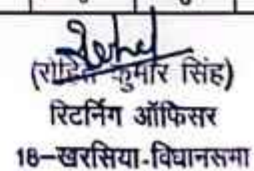 (रोहित कुमार सिंह)
रिटर्निंग ऑफिसर
18–खरसिया-विधानसभा